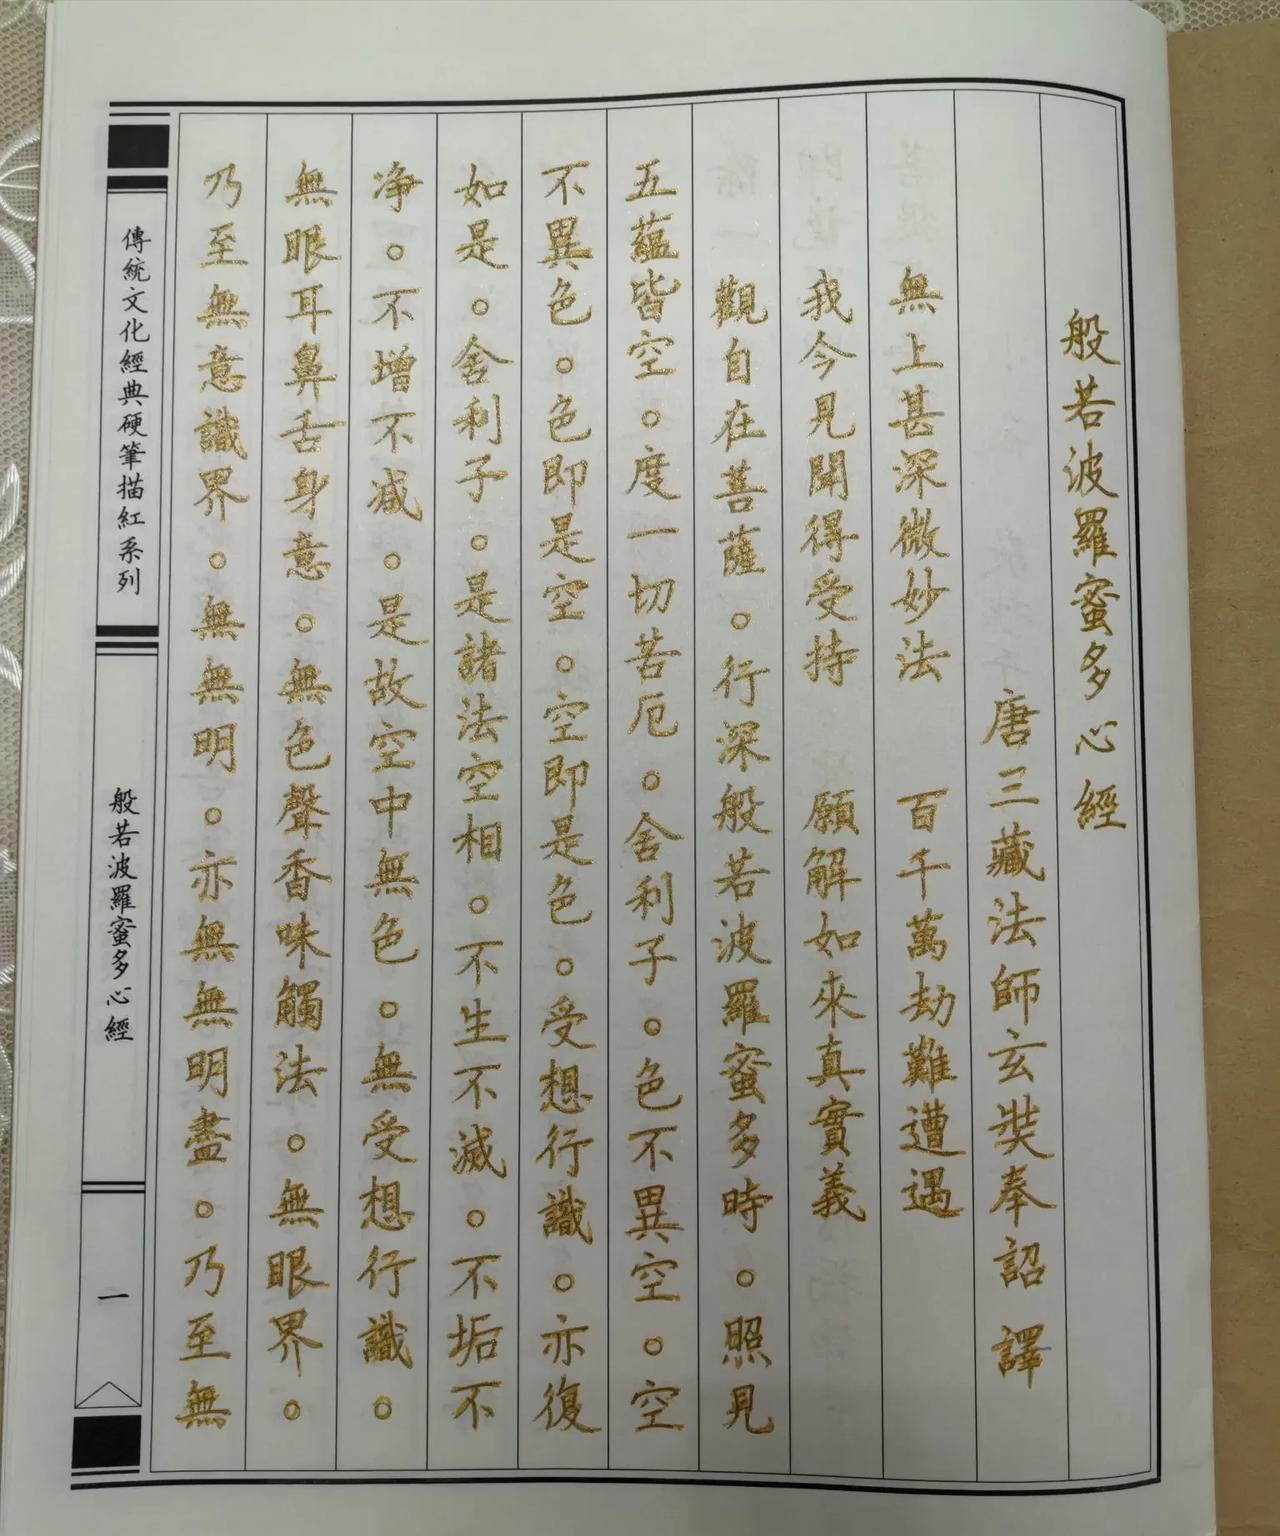 般若波羅蜜多心經
唐三藏法師玄奘奉詔譯
無上甚深微妙法 百千萬劫難遭遇
我今見聞得受持 願解如來真實義
觀自在菩薩。行深般若波羅蜜多時。照見
五蘊皆空。度一切苦厄。舍利子。色不異空。空
不異色。色即是空。空即是色。受想行識。亦復
如是。舍利子。是諸法空相。不生不滅。不垢不
净。不增不减。是故空中無色。無受想行識。
無眼耳鼻舌身意。無色聲香味觸法。無眼界。
乃至無意識界。無無明。亦無無明盡。乃至無
傳統文化經典硬筆描紅系列
般若波羅蜜多心經
一